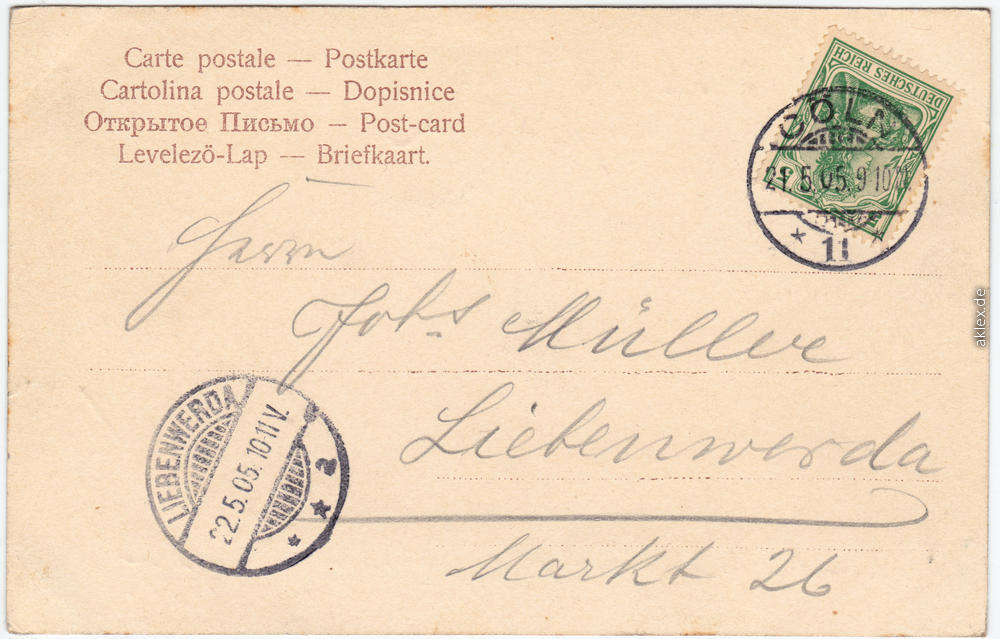 Carte postale — Postkarte
Cartolina postale — Dopisnice
Открытое Письмо — Post-card
Levelező-Lap — Briefkaart.
DEUTSCHES REICH
CÖLN
21.5.05.9 10
* 11 *
Herrn
Johs Müller
Liebenwerda
Markt 26
LIEBENWERDA
22.5.05.10-11V.
* * a
aklex.de